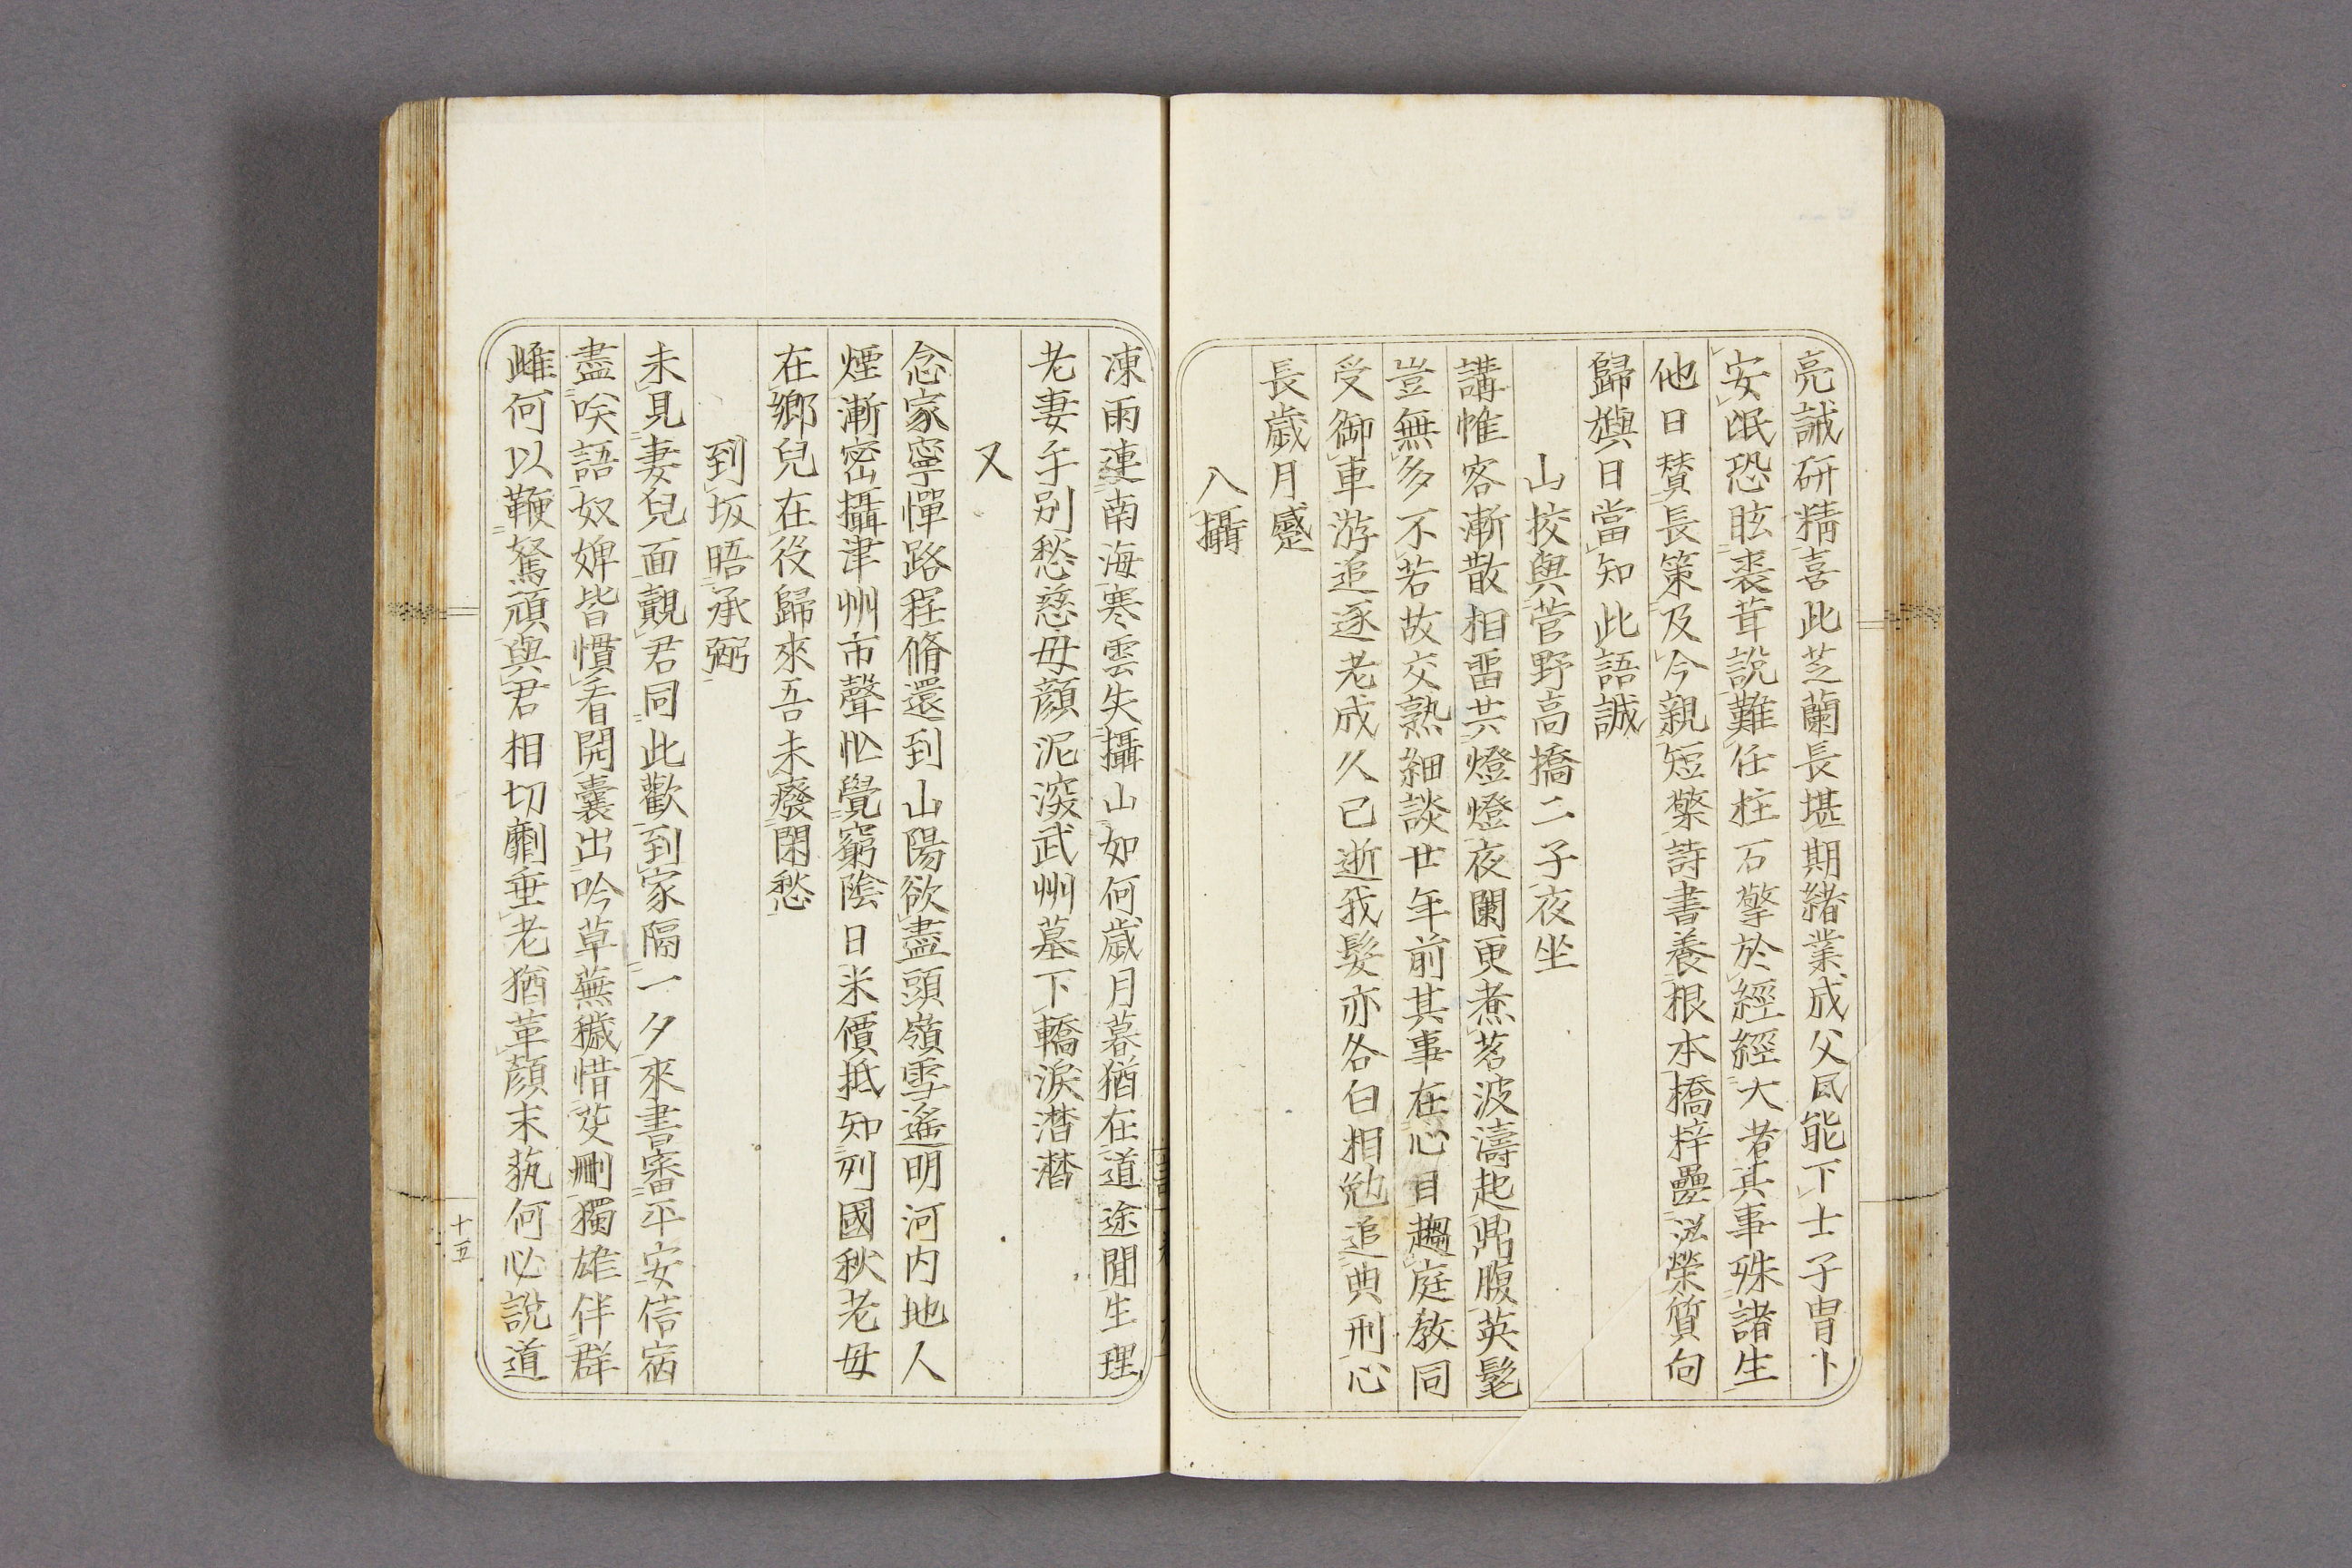 亮誠研精喜此芝蘭長堪期緒業成父風能下士子冑卜
安氓恐眩裘茸說難任柱石擎於經經大者其事殊諸生
他日賛長策及今親短檠詩書養根本橋梓疊泓榮質向
歸櫬日當知此語誠
山挍與菅野高橋二子夜坐
講帷客漸散相畱共燈燈夜闌更煮茗波濤起鼎腹英髦
豈無多不若故交熟細談廿年前其事在心目趨庭教同
受御車游追逐老成久已逝我髮亦各白相勉追典刑心
長歲月蹙
入攝
凍雨連南海寒雲失攝山如何歲月暮猶在道途間生理
老妻手別愁慈母顏泥深武州墓下轎淚潸潸
又
念家寧憚路程脩還到山陽欲盡頭嶺雪遙明河内地人
煙漸密攝津州市聲忙覺窮陰日米價抵知列國秋老母
在鄉兒在役歸來吾未癈閑愁
到坂晤承弼
未見妻兒面覿君同此歡到家隔一夕來書審平安信宿
盡唉語奴婢皆慣看開囊出吟草蕪穢惜芟刪獨雄伴群
雌何以鞭駑頑與君相切劘垂老猶革顏末執何必說道
十五